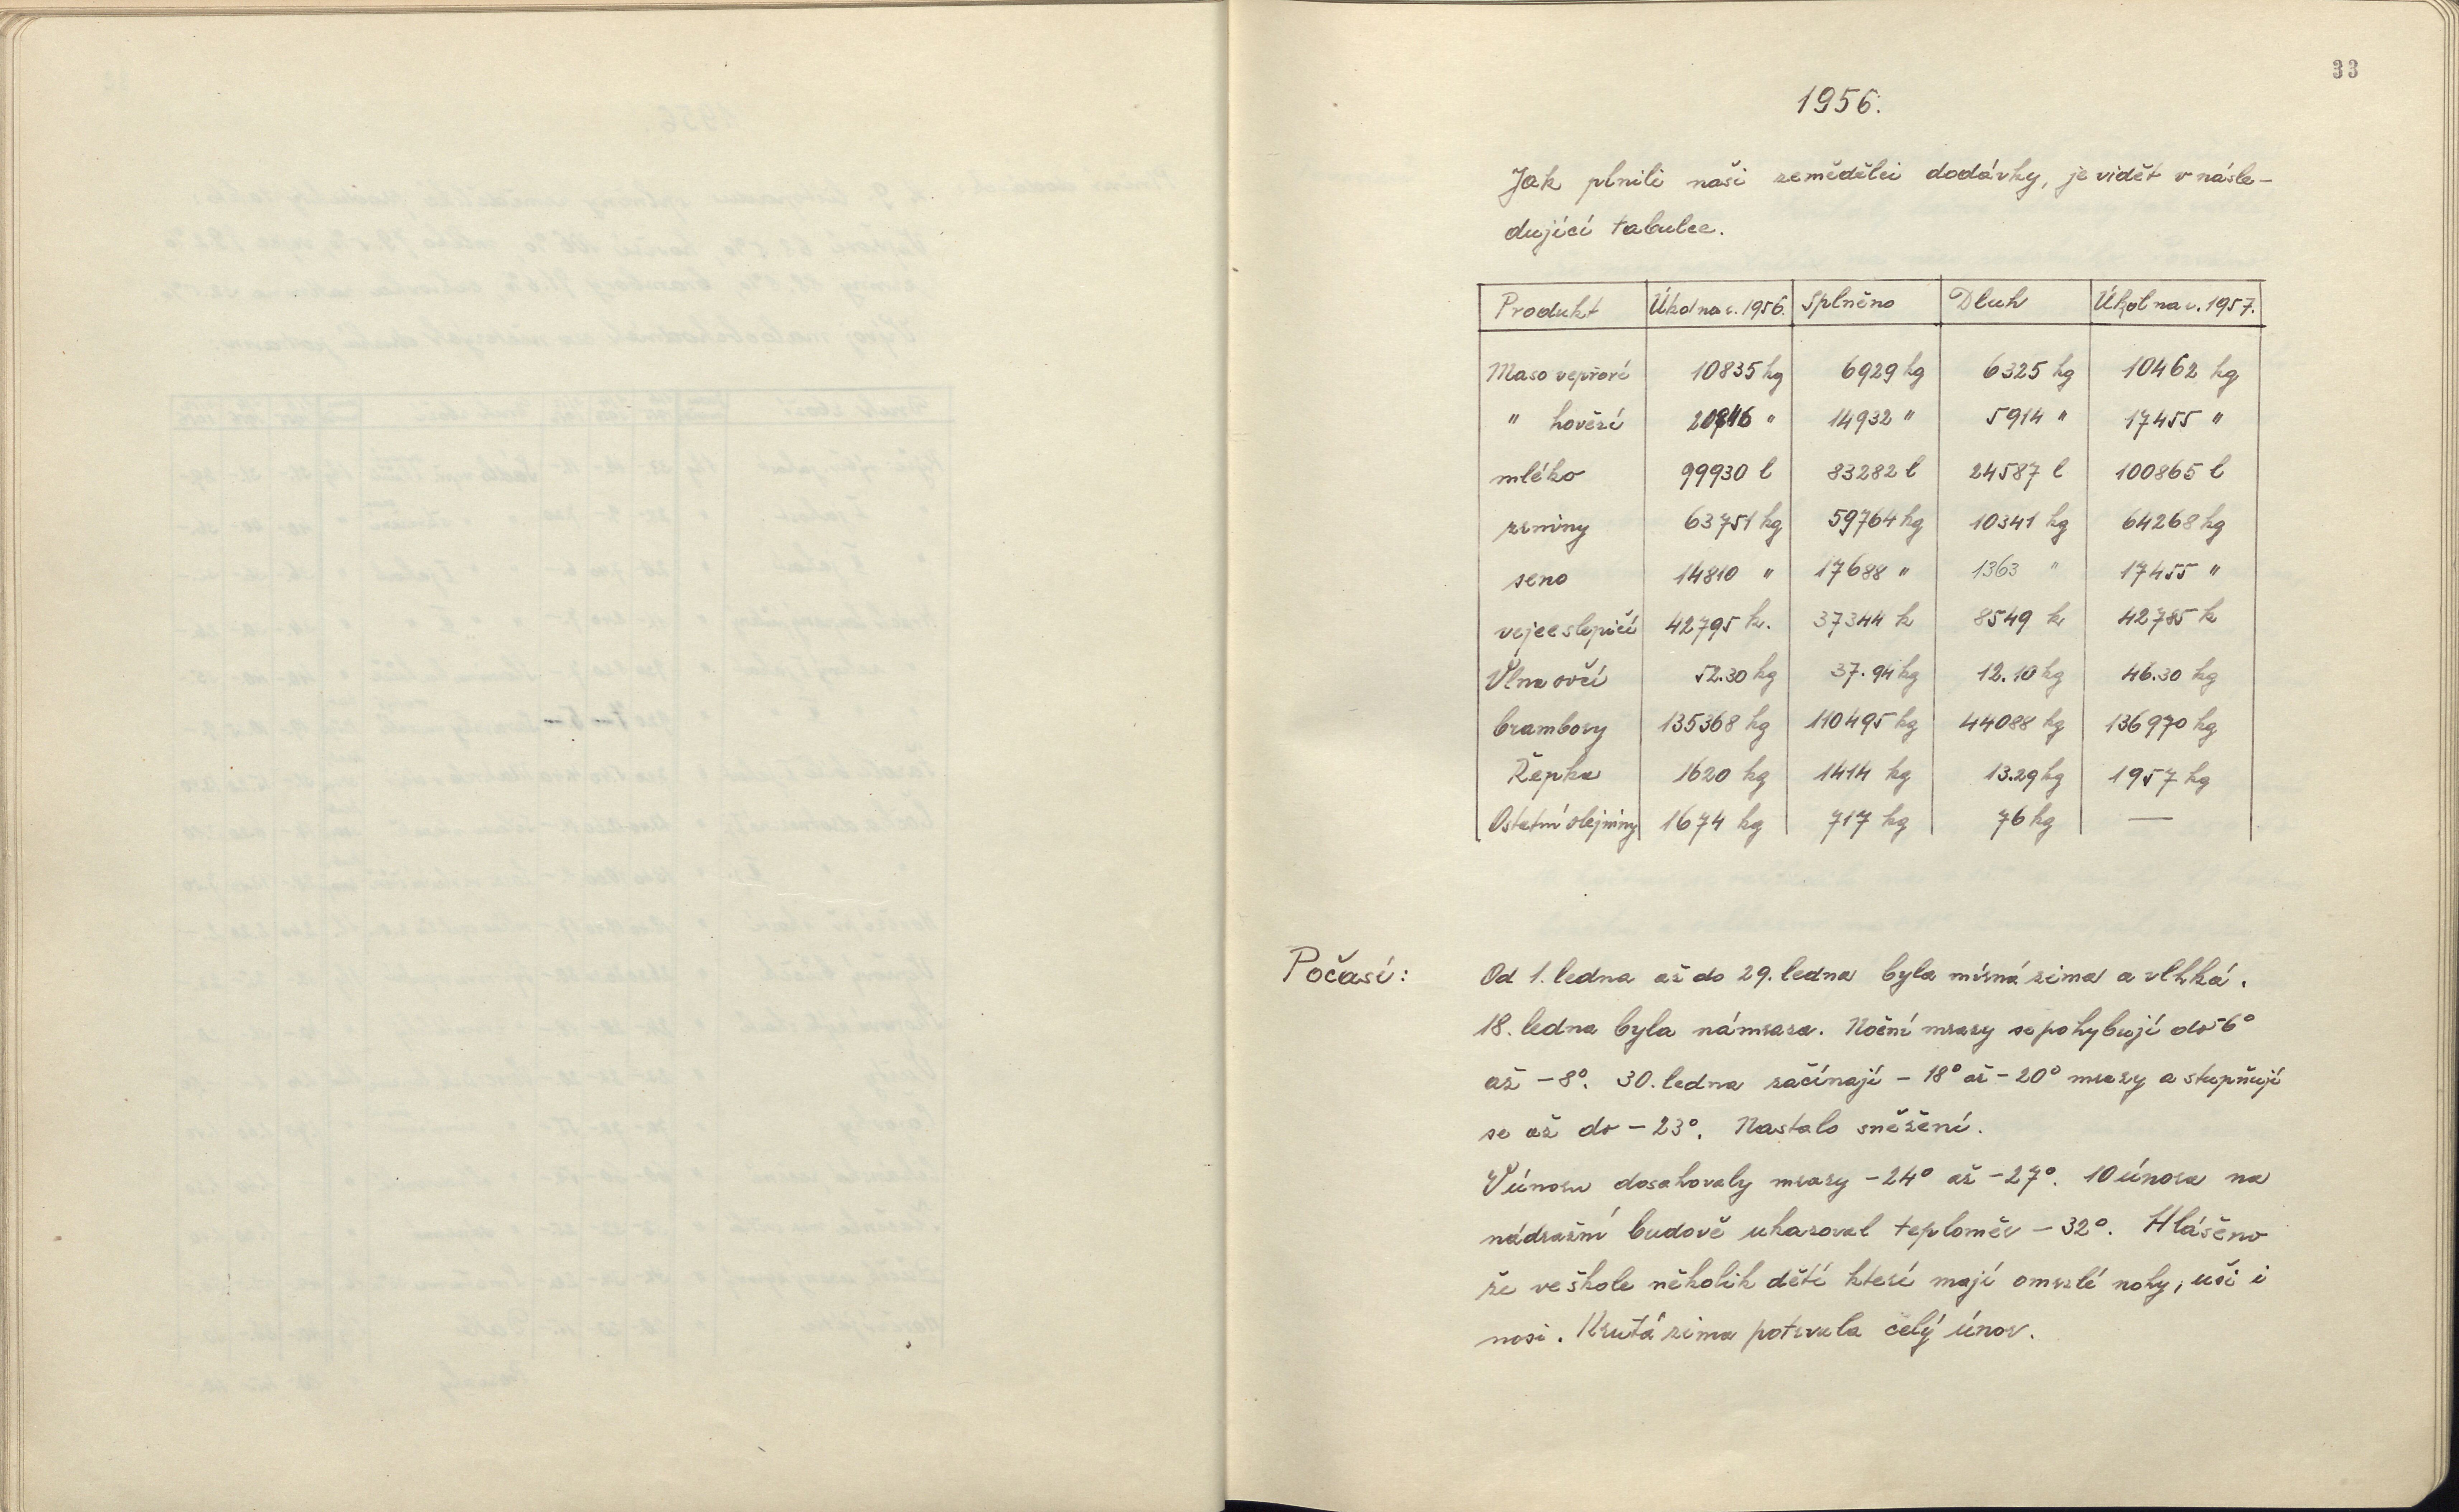 33
1956.
Jak plnili naši zemědělci dodávky, je vidět v násle-
dující tabulce.
Produkt Úkol na r. 1956. Splněno Dluh Úkol na r. 1957.
Maso vepřové 10835 kg 6929 kg 6325 kg 10462 kg
" hovězí " 14932 " 5914 " 17455 "
mléko 99930 l 83282 l 24587 l 100865 l
zrniny 63751 kg 59764 kg 10341 kg 64268 kg
seno 14810 " 17688 " 1363 " 17455 "
vejce slepičí 42795 k. 37344 k 8549 k 42785 k
Vlna ovčí 52.30 kg 37.94 kg 12.10 kg 46.30 kg
brambory 135368 kg 110495 kg 44088 kg 136970 kg
Řepka 1620 kg 1414 kg 13.29 kg 1957 kg
Ostatní olejniny 1674 kg 717 kg 76 kg —
Počasí: Od 1. ledna až do 29. ledna byla mírná zima a vlhká.
18. ledna byla námraza. Noční mrazy se pohybují do -6°
až -8°. 30. ledna začínají -18° až -20° mrazy a stupňují
se až do -23°. Nastalo sněžení.
V únoru dosahovaly mrazy -24° až -27°. 10 února na
nádražní budově ukazoval teploměr -32°. Hlášeno
že ve škole několik dětí kteří mají omrzlé nohy, uši i
nosi. Krutá zima potrvala celý únor.